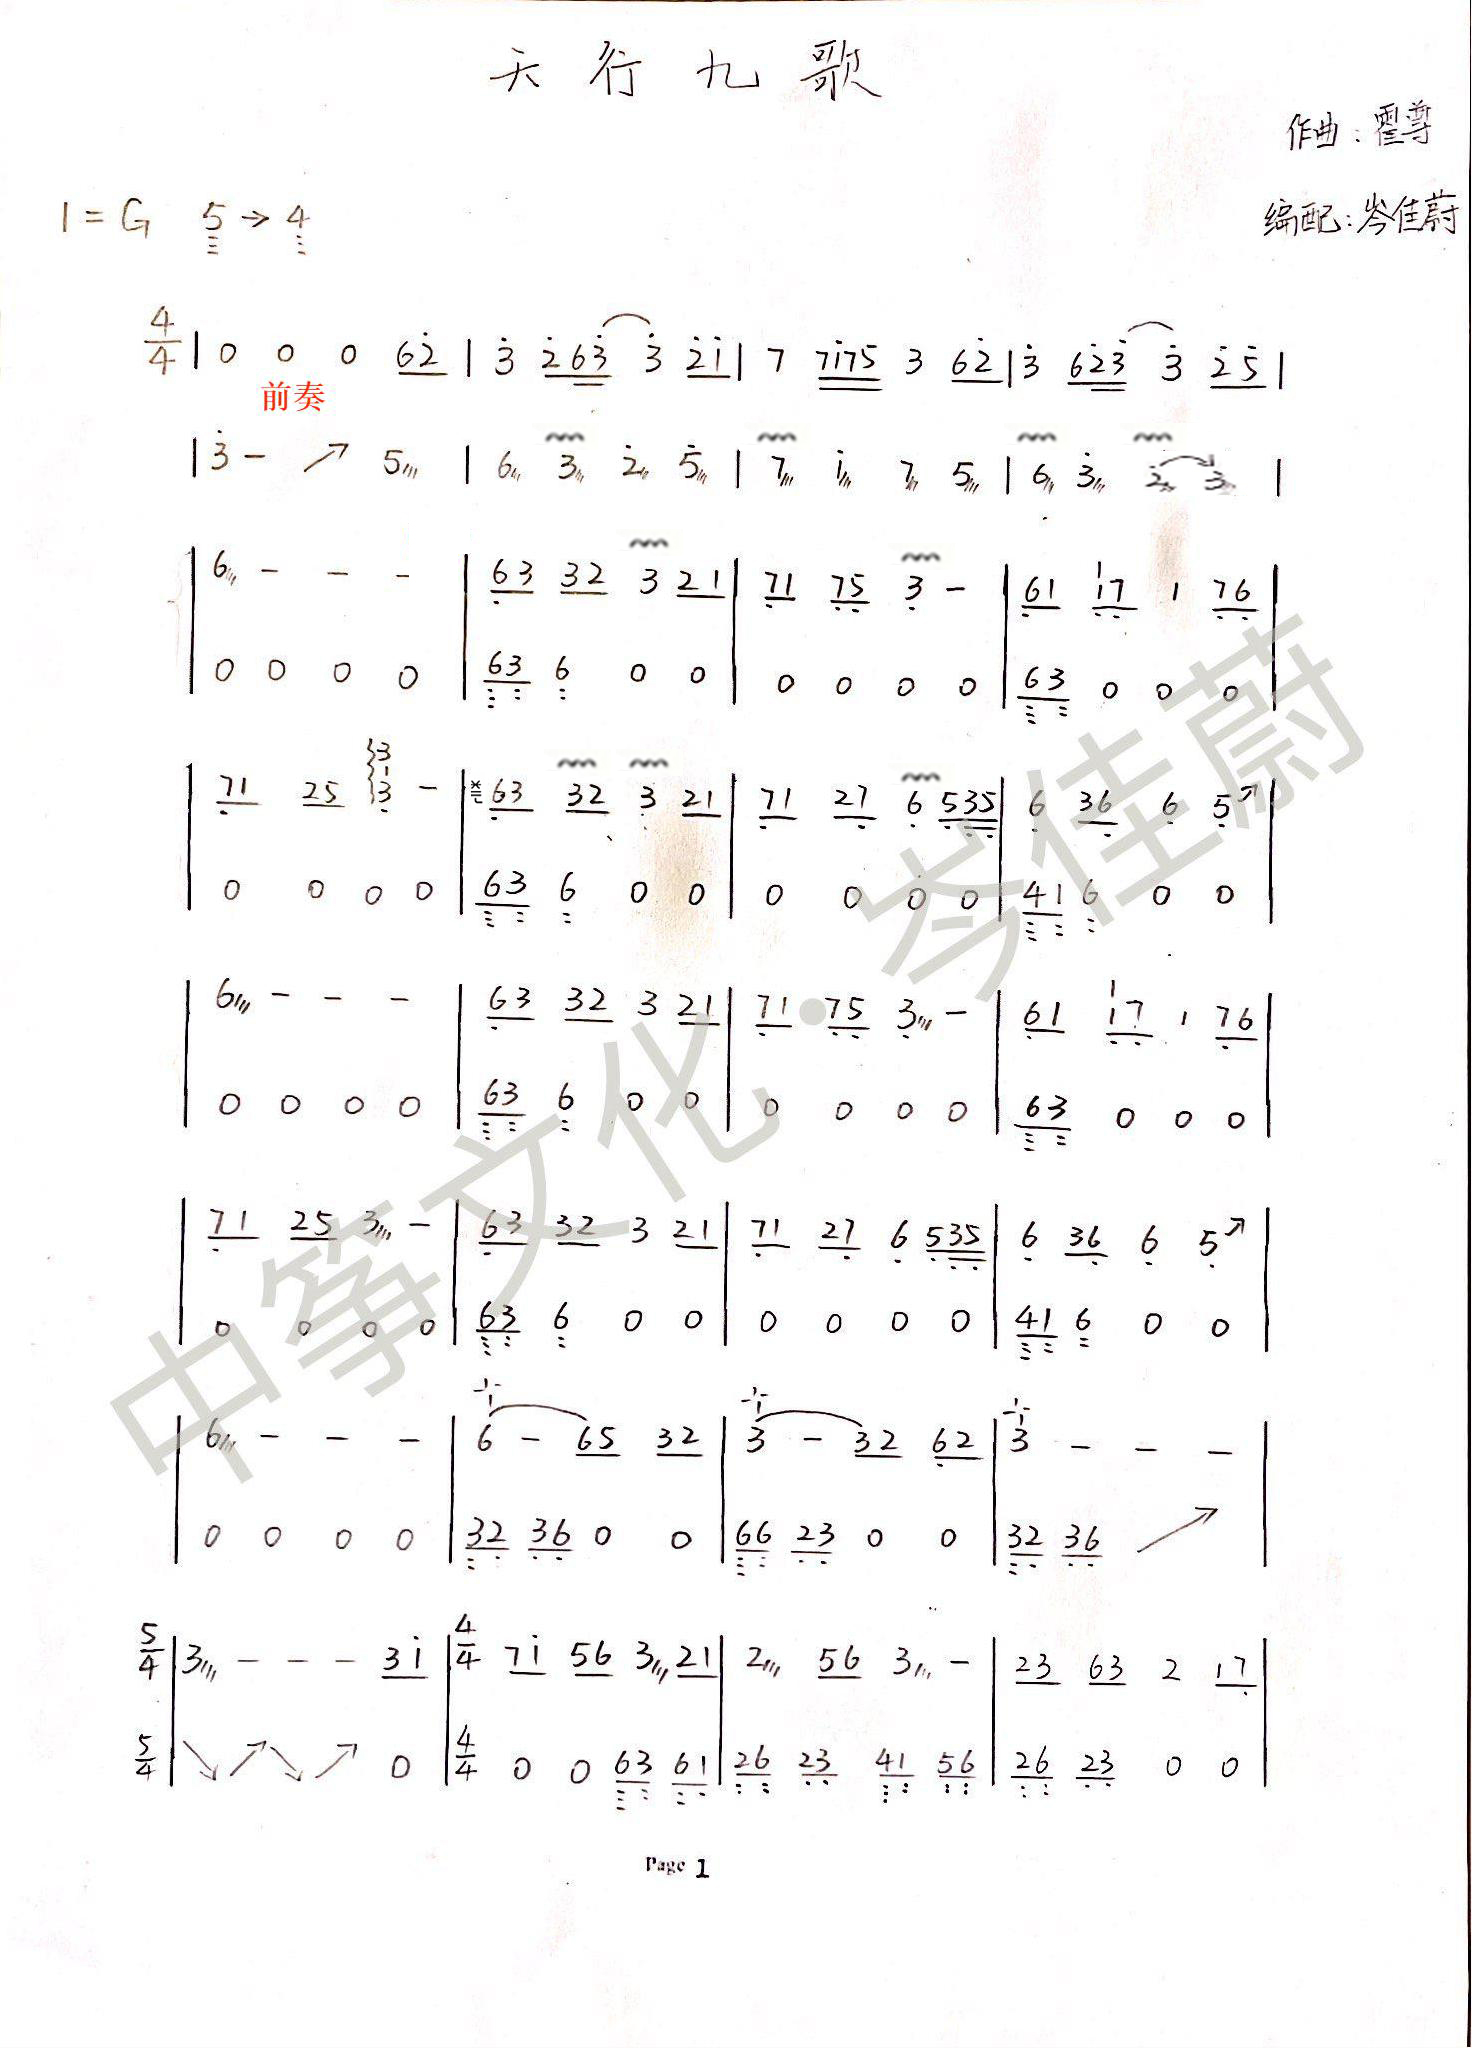 天行九歌
作曲：霍尊
编配：岑佳蔚
1=G 5→4
4/4 | 0 0 0 62 | 3 263 3 21 | 7 7175 3 62 | 3 623 3 25 |
前奏
| 3 - ↗ 5 | 6 3 2 5 | 7 1 7 5 | 6 3 2 3 |
| 6 - - - | 63 32 3 21 | 71 75 3 - | 61 17 1 76 |
| 0 0 0 0 | 63 6 0 0 | 0 0 0 0 | 63 0 0 0 |
| 71 25 3 - | 63 32 3 21 | 71 27 6 535 | 6 36 6 5↗ |
| 0 0 0 0 | 63 6 0 0 | 0 0 0 0 | 41 6 0 0 |
| 6 - - - | 63 32 3 21 | 71 75 3 - | 61 17 1 76 |
| 0 0 0 0 | 63 6 0 0 | 0 0 0 0 | 63 0 0 0 |
| 71 25 3 - | 63 32 3 21 | 71 27 6 535 | 6 36 6 5↗ |
| 0 0 0 0 | 63 6 0 0 | 0 0 0 0 | 41 6 0 0 |
| 6 - - - | 6 - 65 32 | 3 - 32 62 | 3 - - - |
| 0 0 0 0 | 32 36 0 0 | 66 23 0 0 | 32 36 ↗ |
5/4 | 3 - - - 31 | 4/4 71 56 3 21 | 2 56 3 - | 23 63 2 17 |
5/4 | ↘ ↗ ↘ ↗ 0 | 4/4 0 0 63 61 | 26 23 41 56 | 26 23 0 0 |
中筝文化·岑佳蔚
Page 1